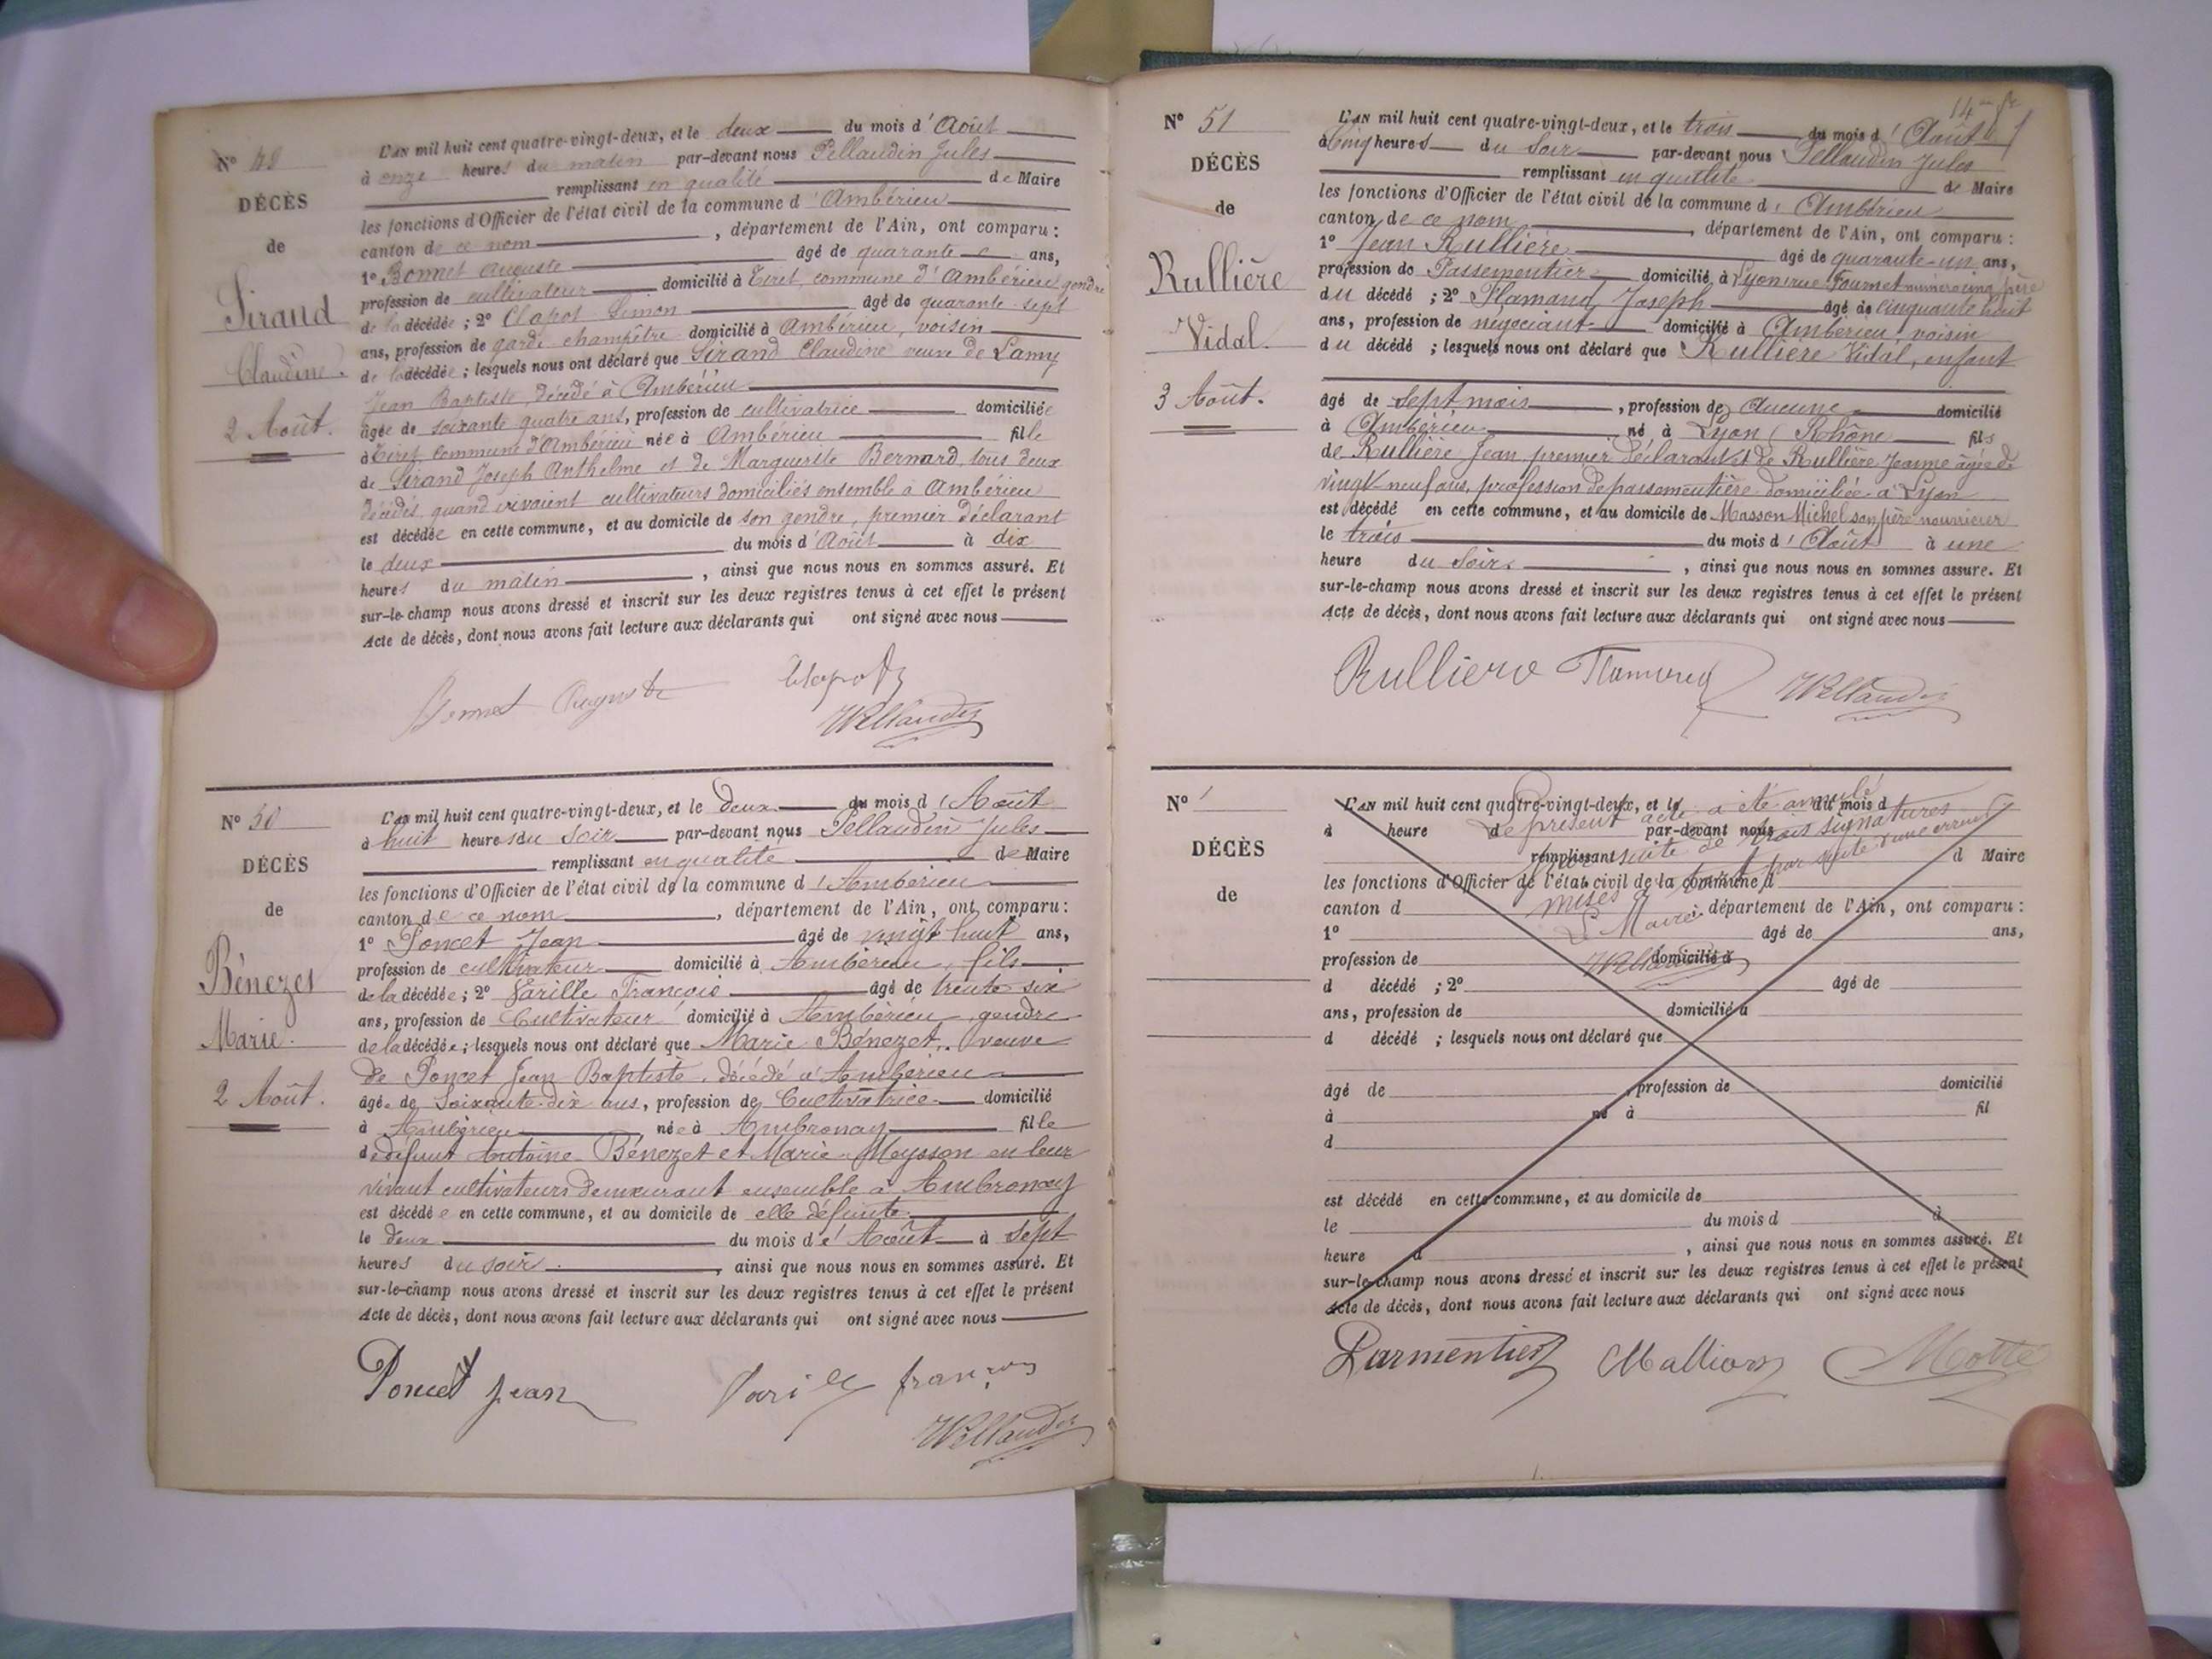 Nº
DÉCÈS
de
Sirand
Claudine.
2 Août.
L'an mil huit cent quatre-vingt-deux, et le deux du mois d'Août
à onze heures du matin par-devant nous Pellaudin Jules
remplissant en qualité de Maire
les fonctions d'Officier de l'état civil de la commune d'Ambérieu
canton de ce nom, département de l'Ain, ont comparu :
1º Bonnet Auguste âgé de quarante ans,
profession de cultivateur domicilié à Tiret, commune d'Ambérieu gendre
de la décédée ; 2º Clapot Simon âgé de quarante-sept
ans, profession de garde champêtre domicilié à Ambérieu, voisin
de la décédée ; lesquels nous ont déclaré que Sirand Claudine veuve de Lamy
Jean Baptiste, décédé à Ambérieu
âgée de soixante quatre ans, profession de cultivatrice domiciliée
à Tiret commune d'Ambérieu née à Ambérieu fille
de Sirand Joseph Anthelme et de Marguerite Bernard, tous deux
décédés, quand vivaient cultivateurs domiciliés ensemble à Ambérieu
est décédée en cette commune, et au domicile de son gendre, premier déclarant
le deux du mois d'Août à dix
heures du matin, ainsi que nous nous en sommes assuré. Et
sur-le-champ nous avons dressé et inscrit sur les deux registres tenus à cet effet le présent
Acte de décès, dont nous avons fait lecture aux déclarants qui ont signé avec nous
Bonnet Auguste Clapot
Pellaudin
Nº 50
DÉCÈS
de
Bénezet
Marie.
2 Août.
L'an mil huit cent quatre-vingt-deux, et le deux du mois d'Août
à huit heures du soir par-devant nous Pellaudin Jules
remplissant en qualité de Maire
les fonctions d'Officier de l'état civil de la commune d'Ambérieu
canton de ce nom, département de l'Ain, ont comparu :
1º Poncet Jean âgé de vingt huit ans,
profession de cultivateur domicilié à Ambérieu, fils
de la décédée ; 2º Varille François âgé de trente six
ans, profession de Cultivateur domicilié à Ambérieu, gendre
de la décédée ; lesquels nous ont déclaré que Marie Bénezet, veuve
de Poncet Jean Baptiste, décédé à Ambérieu
âgée de Soixante-dix ans, profession de Cultivatrice domicilié
à Ambérieu, née à Ambronay fille
de défunt Antoine Bénezet et Marie Meysson en leur
vivant cultivateurs demeurant ensemble à Ambronay
est décédée en cette commune, et au domicile de elle défunte
le deux du mois d'Août à sept
heures du soir, ainsi que nous nous en sommes assuré. Et
sur-le-champ nous avons dressé et inscrit sur les deux registres tenus à cet effet le présent
Acte de décès, dont nous avons fait lecture aux déclarants qui ont signé avec nous
Poncet Jean Varille françois
Pellaudin
14
Nº 51
DÉCÈS
de
Rullière
Vidal.
3 Août.
L'an mil huit cent quatre-vingt-deux, et le trois du mois d'Août
à Cinq heures du Soir par-devant nous Pellaudin Jules
remplissant en qualité de Maire
les fonctions d'Officier de l'état civil de la commune d'Ambérieu
canton de ce nom, département de l'Ain, ont comparu :
1º Jean Rullière âgé de quarante-un ans,
profession de Passementier domicilié à Lyon rue Fournet numéro cinq père
du décédé ; 2º Flamand, Joseph âgé de cinquante huit
ans, profession de négociant domicilié à Ambérieu voisin
du décédé ; lesquels nous ont déclaré que Rullière Vidal, enfant
âgé de sept mois, profession de aucune domicilié
à Ambérieu né à Lyon (Rhône fils
de Rullière Jean premier déclarant et de Rullière Jeanne âgée de
vingt-neuf ans, profession de passementière domiciliée à Lyon
est décédé en cette commune, et au domicile de Masson Michel son père nourricier
le trois du mois d'Août à une
heure du Soir, ainsi que nous nous en sommes assuré. Et
sur-le-champ nous avons dressé et inscrit sur les deux registres tenus à cet effet le présent
Acte de décès, dont nous avons fait lecture aux déclarants qui ont signé avec nous
Rulliere Flamand Pellaudin
Nº
DÉCÈS
de
L'an mil huit cent quatre-vingt-deux, et le du mois d
à heure d par-devant nous
remplissant d Maire
les fonctions d'Officier de l'état civil de la commune d
canton d, département de l'Ain, ont comparu :
1º âgé de ans,
profession de domicilié à
d décédé ; 2º âgé de
ans, profession de domicilié à
d décédé ; lesquels nous ont déclaré que
âgé de, profession de domicilié
à né à fil
d
est décédé en cette commune, et au domicile de
le du mois d à
heure d, ainsi que nous nous en sommes assuré. Et
sur-le-champ nous avons dressé et inscrit sur les deux registres tenus à cet effet le présent
Acte de décès, dont nous avons fait lecture aux déclarants qui ont signé avec nous
Le présent acte a été annulé
suite de trois signatures
mises à tort par suite d'une erreur
Le Maire
Pellaudin
Parmentier Motte